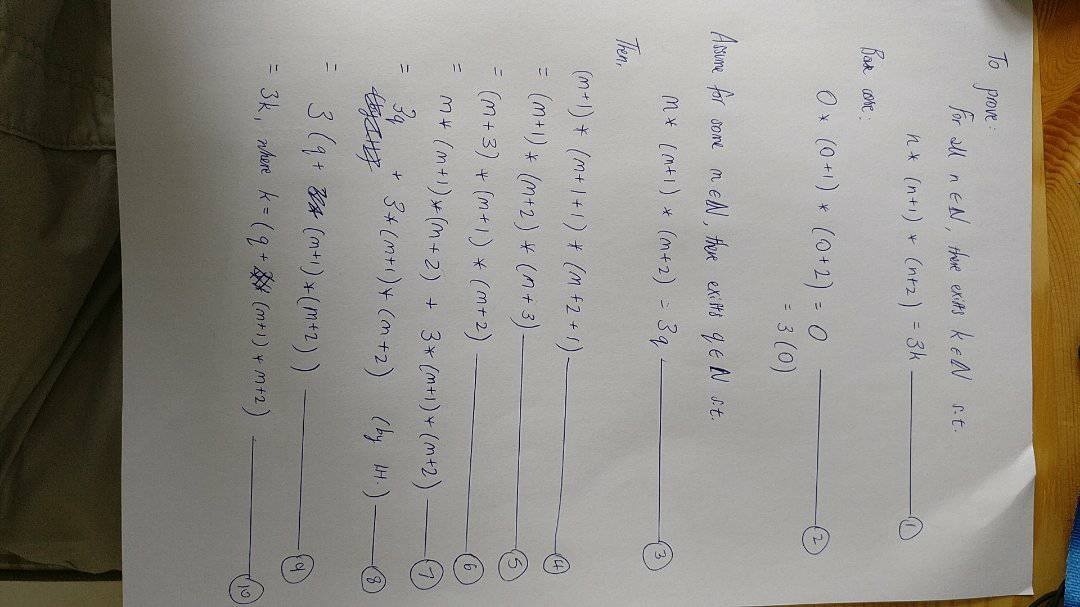 To prove:
For all n ∈ N, there exists k ∈ N s.t.
n * (n+1) * (n+2) = 3k ①
Base case:
0 * (0+1) * (0+2) = 0 ②
= 3(0)
Assume for some m ∈ N, there exists q ∈ N s.t.
m * (m+1) * (m+2) = 3q ③
Then,
(m+1) * (m+1+1) * (m+2+1) ④
= (m+1) * (m+2) * (m+3) ⑤
= (m+3) * (m+1) * (m+2) ⑥
= m * (m+1) * (m+2) + 3 * (m+1) * (m+2) ⑦
= 3q + 3 * (m+1) * (m+2) (by IH.) ⑧
= 3 (q + (m+1) * (m+2)) ⑨
= 3k, where k = (q + (m+1) * m+2) ⑩